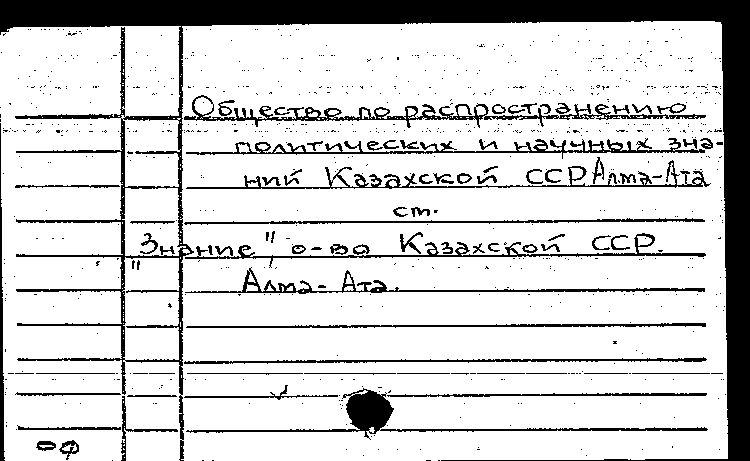 Общество по распространению
политических и научных зна-
ний Казахской ССР Алма-Ата
ст.
"Знание", о-во Казахской ССР.
Алма-Ата.